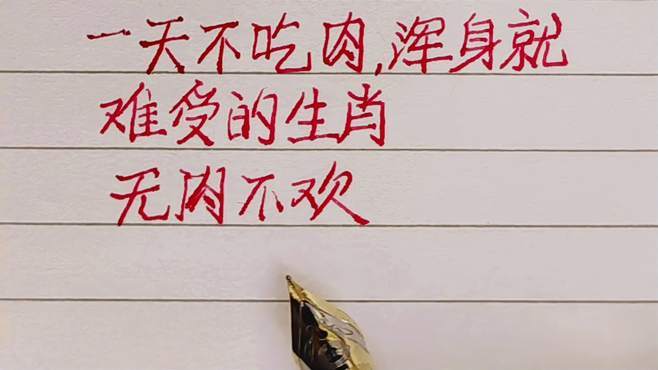 一天不吃肉,浑身就
难受的生肖
无肉不欢